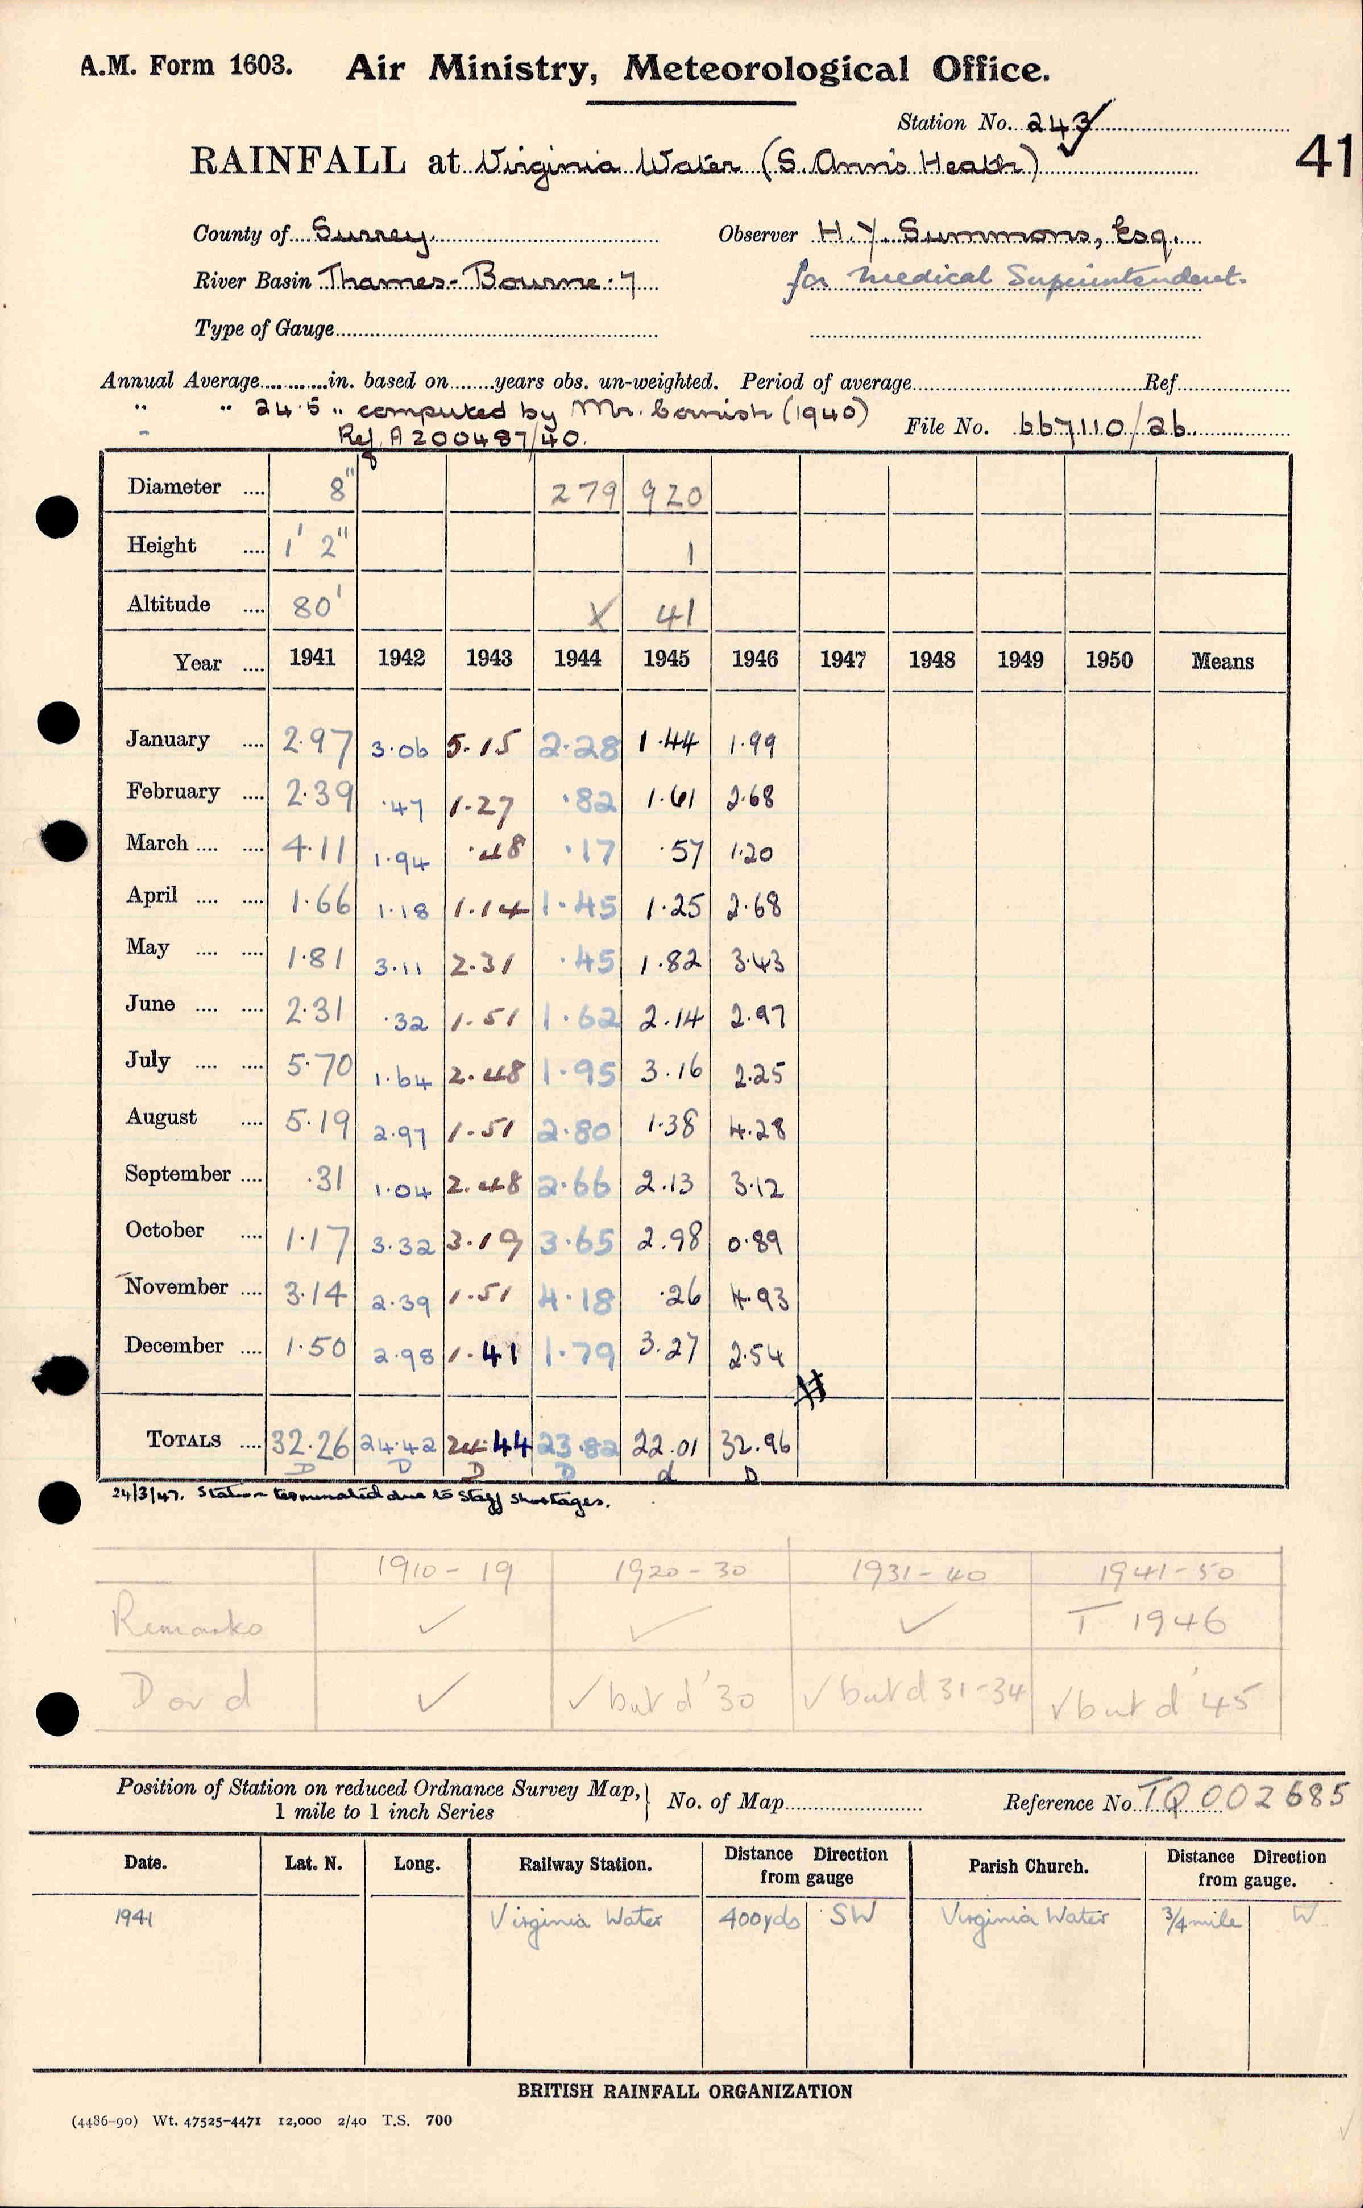 A.M. Form 1603. Air Ministry, Meteorological Office.
Station No. 243
41
RAINFALL at Virginia Water (S. Ann's Heath)
County of Surrey Observer H. Y. Summons, Esq.
River Basin Thames - Bourne. 7 for Medical Superintendent.
Type of Gauge
Annual Average in. based on years obs. un-weighted. Period of average Ref.
" " 24.5 " computed by Mr. Cornish (1940)
Ref. A200487/40. File No. 667110/26
Diameter 8" 279 920
Height 1' 2" 1
Altitude 80' X 41
Year 1941 1942 1943 1944 1945 1946 1947 1948 1949 1950 Means
January 2.97 3.06 5.15 2.28 1.44 1.99
February 2.39 .47 1.27 .82 1.61 2.68
March 4.11 1.94 .48 .17 .57 1.20
April 1.66 1.18 1.14 1.45 1.25 2.68
May 1.81 3.11 2.31 .45 1.82 3.43
June 2.31 .32 1.51 1.62 2.14 2.97
July 5.70 1.64 2.48 1.95 3.16 2.25
August 5.19 2.97 1.51 2.80 1.38 4.28
September .31 1.04 2.48 2.66 2.13 3.12
October 1.17 3.32 3.19 3.65 2.98 0.89
November 3.14 2.39 1.51 4.18 .26 4.93
December 1.50 2.98 1.41 1.79 3.27 2.54
TOTALS 32.26 24.42 24.44 23.82 22.01 32.96
D D D D d D
24/3/47. Station terminated due to staff shortages.
1910-19 1920-30 1931-40 1941-50
Remarks ✓ ✓ ✓ T 1946
D or d ✓ ✓ but d '30 ✓ but d 31-34 ✓ but d '45
Position of Station on reduced Ordnance Survey Map,
1 mile to 1 inch Series No. of Map Reference No. TQ 002685
Date. Lat. N. Long. Railway Station. Distance from gauge Direction Parish Church. Distance from gauge. Direction
1941 Virginia Water 400yds SW Virginia Water 3/4 mile W
BRITISH RAINFALL ORGANIZATION
(4486-90) Wt. 47525-4471 12,000 2/40 T.S. 700